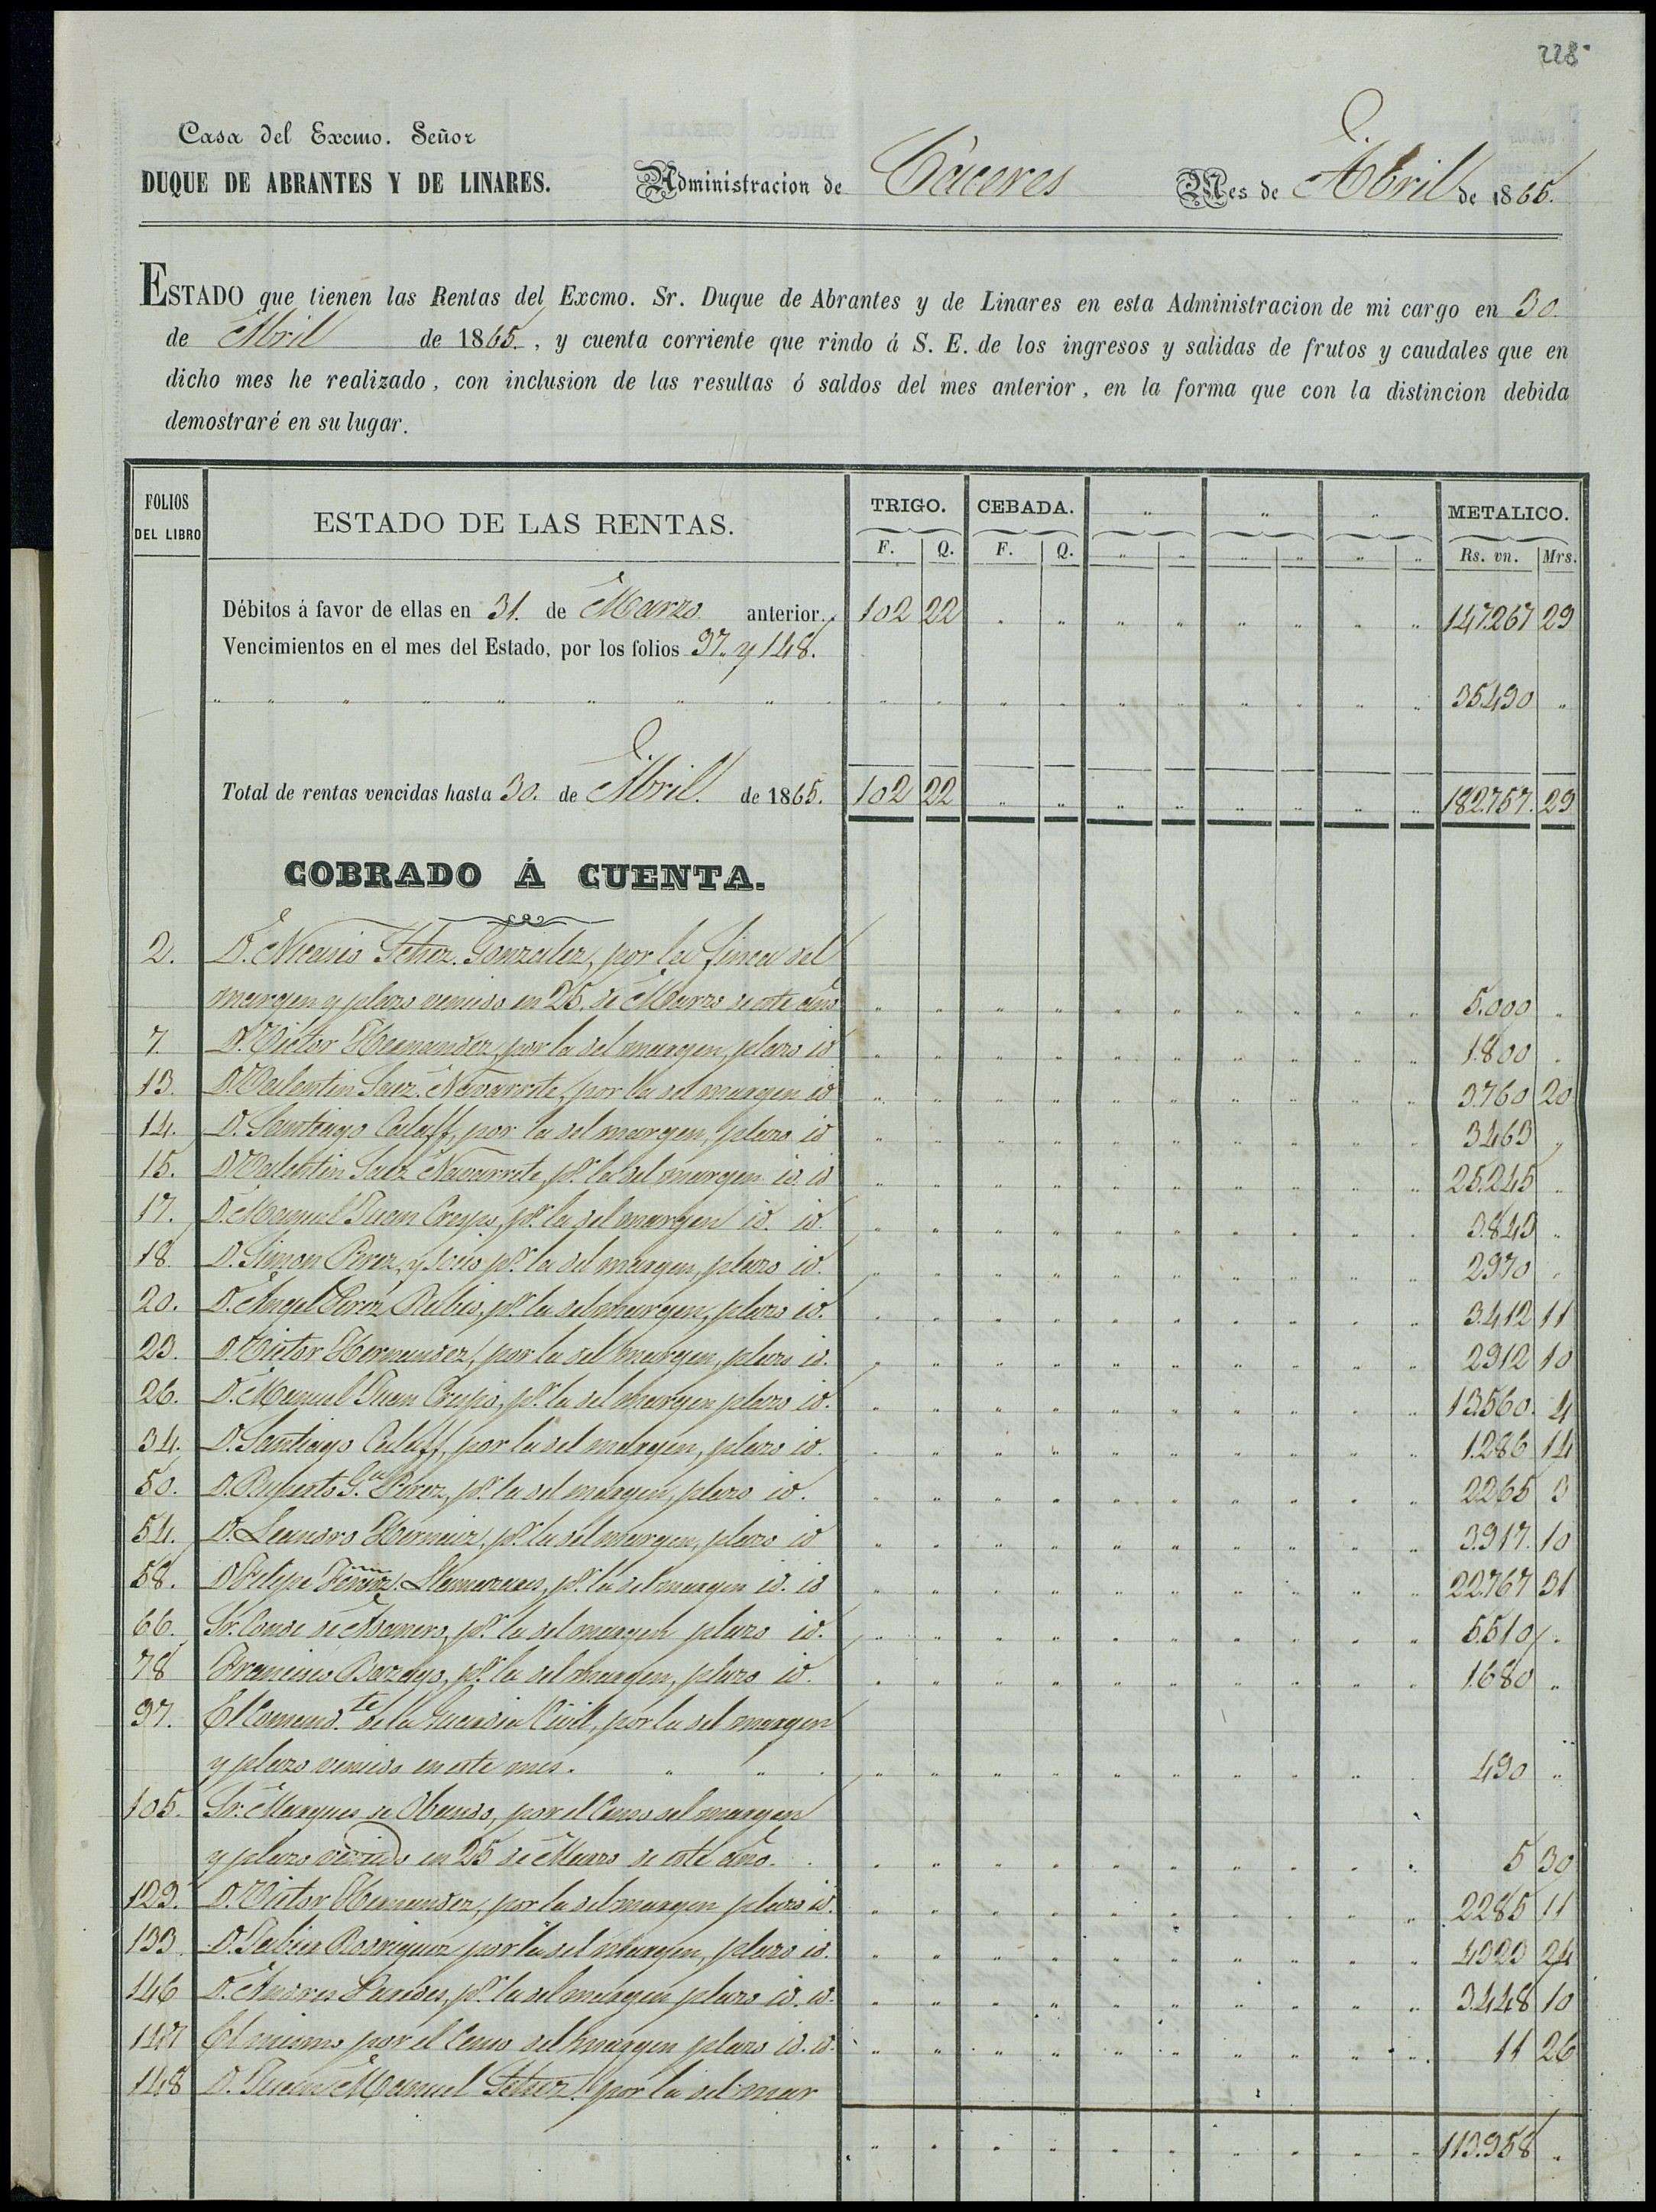 228
Casa del Excmo. Señor
DUQUE DE ABRANTES Y DE LINARES. Administracion de Cáceres Mes de Abril de 1865.
ESTADO que tienen las Rentas del Excmo. Sr. Duque de Abrantes y de Linares en esta Administracion de mi cargo en 30.
de Abril de 1865., y cuenta corriente que rindo á S. E. de los ingresos y salidas de frutos y caudales que en
dicho mes he realizado, con inclusion de las resultas ó saldos del mes anterior, en la forma que con la distincion debida
demostraré en su lugar.
FOLIOS DEL LIBRO ESTADO DE LAS RENTAS. TRIGO. CEBADA. " " " METALICO.
F. Q. F. Q. " " " " " " Rs. vn. Mrs.
Débitos á favor de ellas en 31. de Marzo anterior. 102 22 " " " " " " " " 147.267 29
Vencimientos en el mes del Estado, por los folios 97. y 148.
" " " " " " " " " " " " " " " " " " 35.490 "
Total de rentas vencidas hasta 30. de Abril. de 1865. 102 22 " " " " " " " " 182.757. 29
COBRADO Á CUENTA.
2. D. Nicasio Fehez. Gonzalez, por la finca del
margen y plazo vencido en 25. de Marzo de este año " " " " " " " " " " 5.000 "
7. D. Victor Hernandez, por la del margen, plazo id " " " " " " " " " " 1.800 "
13. D. Valentin Saez. Navarrete, por la del margen id " " " " " " " " " " 3.760 20
14. D. Santiago Calaff, por la del margen, plazo id " " " " " " " " " " 3.463 "
15. D. Valentin Saez Navarrete, pr. la del margen id. id " " " " " " " " " " 25.245 "
17. D. Manuel Juan Crespo, pr. la del margen id. id. " " " " " " " " " " 3.843 "
18. D. Simon Perez, y socio pr. la del margen, plazo id. " " " " " " " " " " 2.970 "
20. D. Angel Perez Rubio, pr. la del margen, plazo id. " " " " " " " " " " 3.412 11
23. D. Victor Hernandez, por la del margen, plazo id. " " " " " " " " " " 2.912 10
26. D. Manuel Juan Crespo, pr. la del margen plazo id. " " " " " " " " " " 13.560. 4
34. D. Santiago Calaff, por la del margen, plazo id. " " " " " " " " " " 1.286 14
50. D. Ruperto Ga. Perez, pr. la del margen, plazo id. " " " " " " " " " " 2.265 3
54. D. Leandro Hernaiz, pr. la del margen, plazo id " " " " " " " " " " 3.917. 10
58. D. Felipe Llamazares, pr. la del margen id. id " " " " " " " " " " 22.767 31
66. Sr. Conde de Adanero, pr. la del margen plazo id. " " " " " " " " " " 5.510 "
78 Francisco Barzayo, pr. la del margen, plazo id. " " " " " " " " " " 1.680 "
97. El Comandte. de la Guardia Civil, por la del margen
y plazo vencido en este mes. " " " " " " " " " " " " 490 "
105. Sr. Marques de Obando, por el Censo del margen
y plazo vencido en 25 de Marzo de este año. " " " " " " " " " " 5 30
123. D. Victor Hernandez, por la del margen plazo id. " " " " " " " " " " 2.285 11
133 D. Rodriguez por la del margen, plazo id. " " " " " " " " " " 4.323 24
146 D. Andres Paredes, pr. la del margen plazo id. id. " " " " " " " " " " 3.448 10
147 El mismo por el Censo del margen plazo id. id. " " " " " " " " " " 11 26
148 D. Juan Manuel Fehez. por la del mar
" " " " " " " " " " 113.958 "